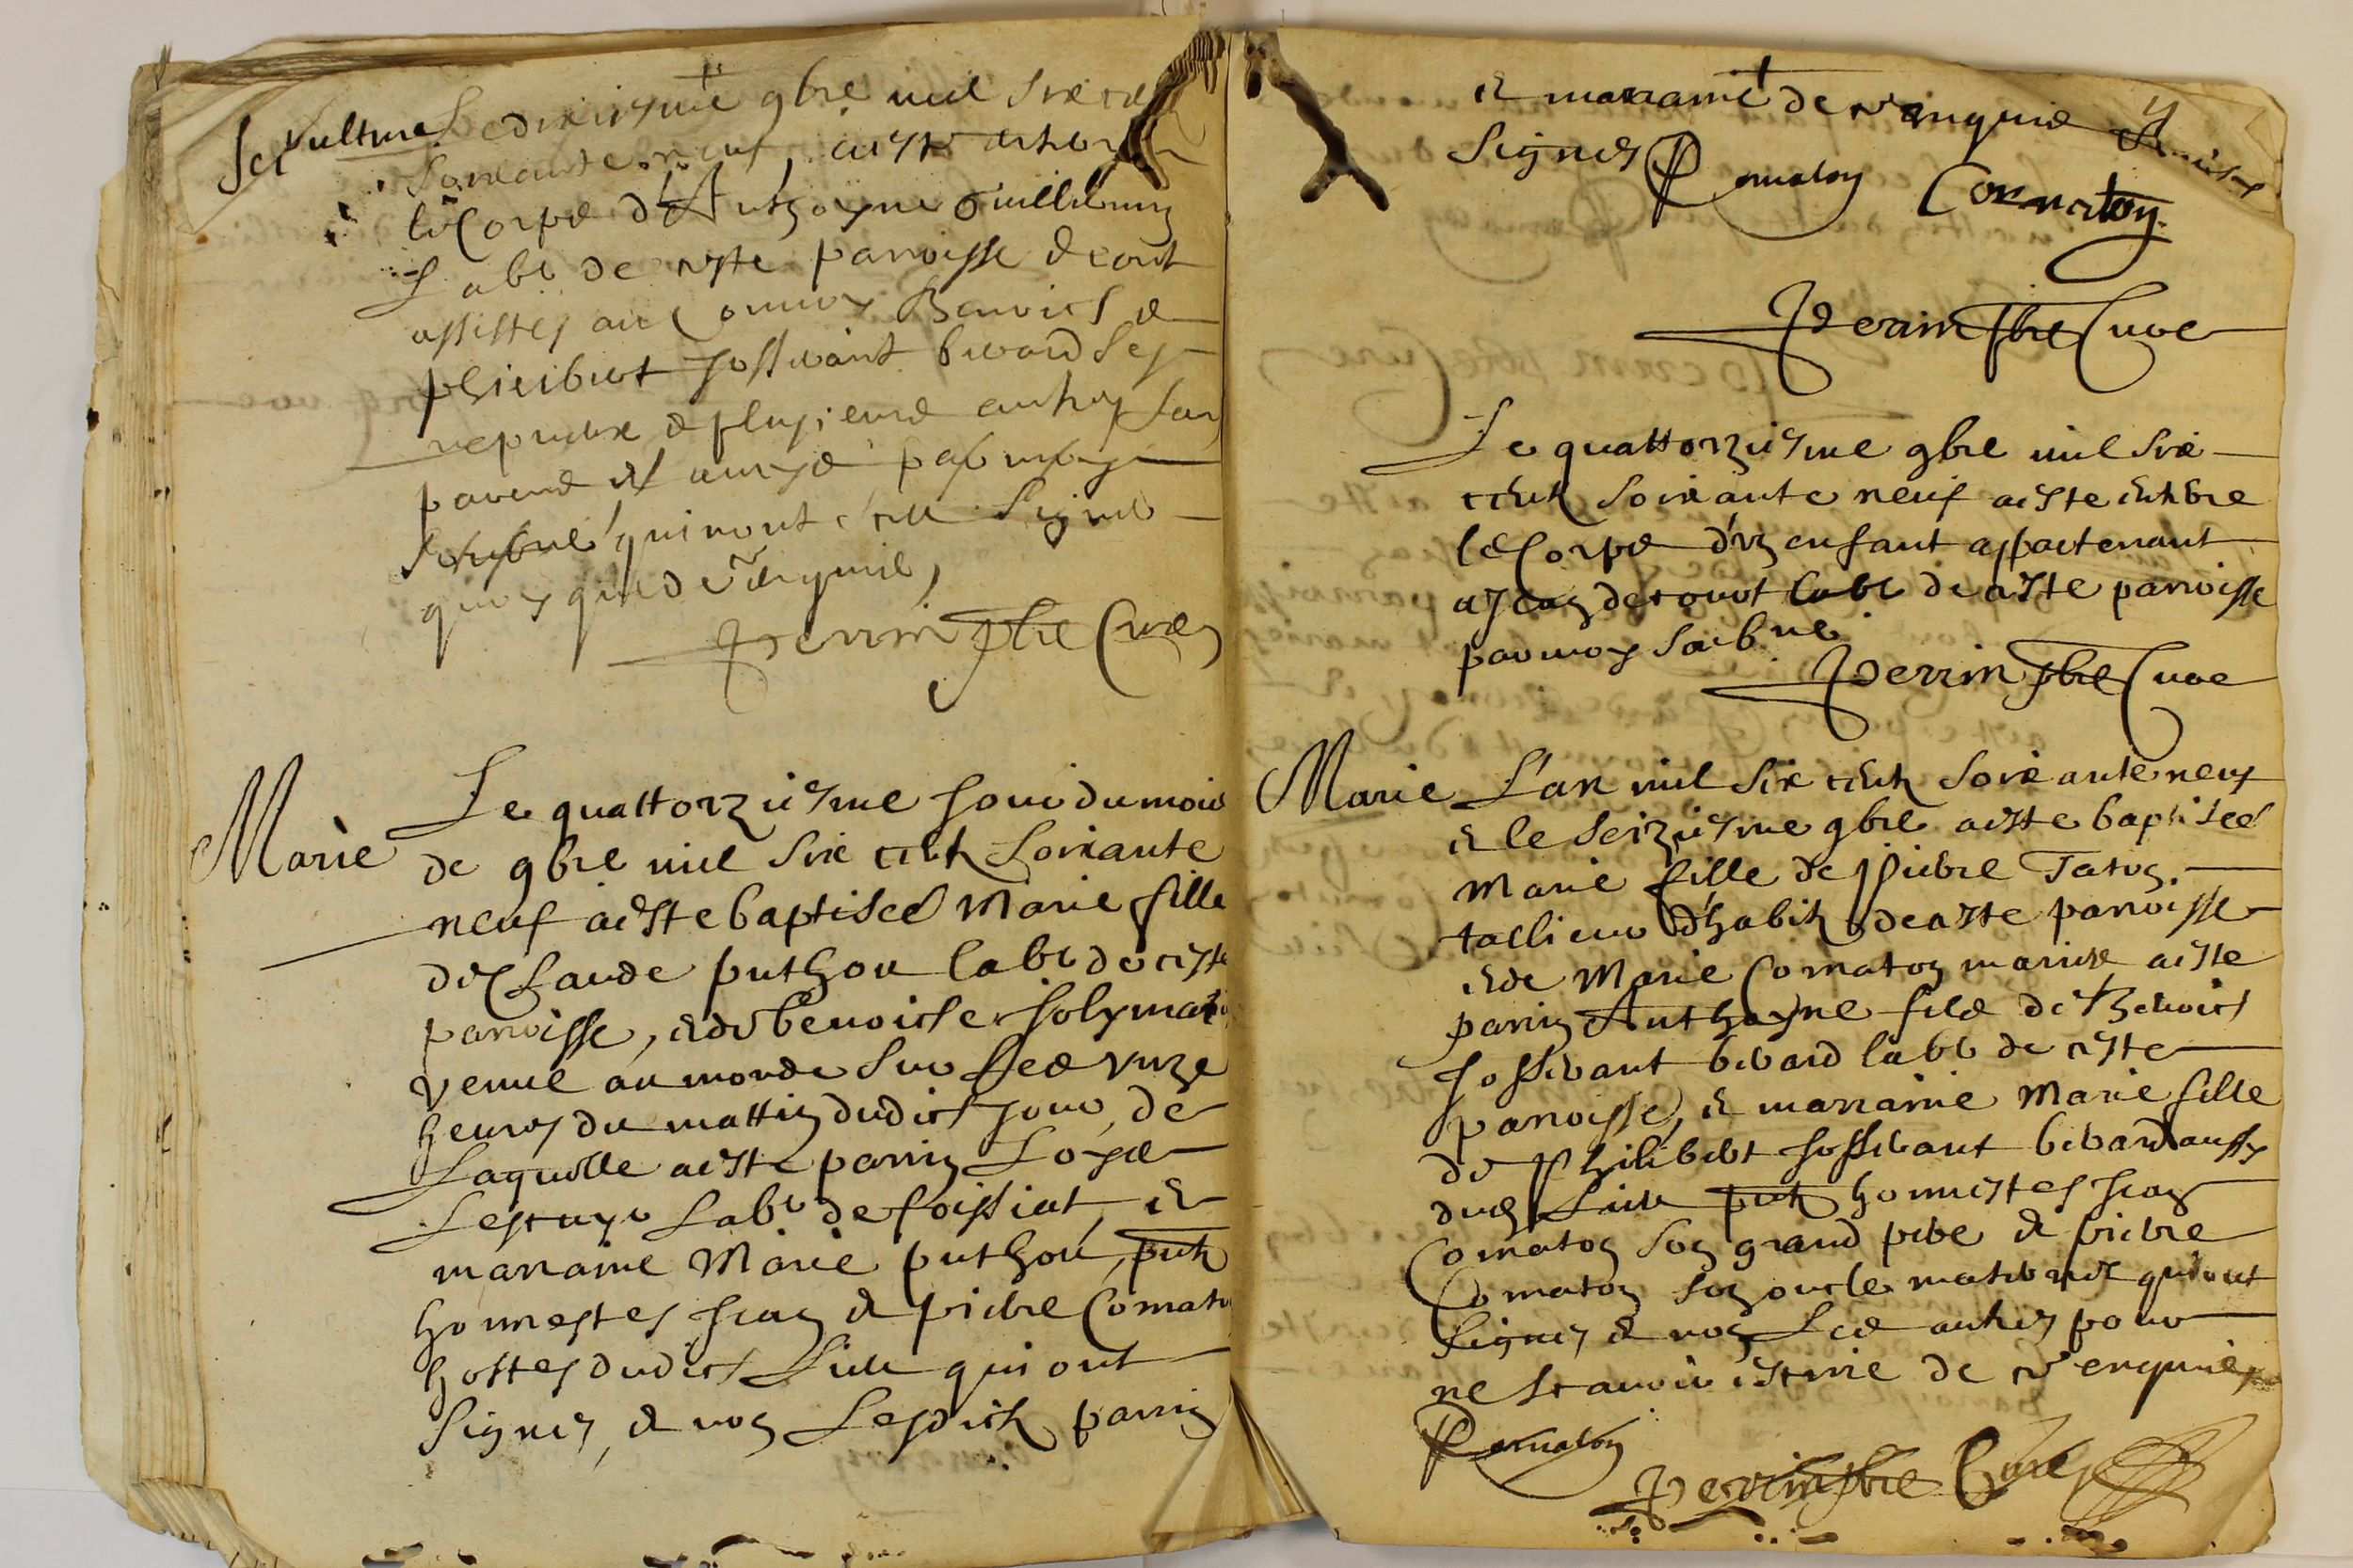 Sepulture Le dixiesme 9bre mil six cent
soixante neuf, a este enterré
le Corps d'Anthoyne Guillemin
Labr de ceste parroisse & ont
assistes au Convoy Benoict &
philibert Josserant berard ses
nepveux & plusieurs autres ses
parens et amys par moy
soubsné qui n'ont sceu signé
quoy que de ce requis,
Perrin pbre Curé
Marie Le quattorziesme jour du mois
de 9bre mil six cent soixante
neuf a este baptisée Marie fille
de Claude puthou labr de ceste
parroisse, et de benoiste joly mariés
venue au monde sur les unze
heures du mattin dudict jour, de
Laquelle a este parrin Loys
Labr de foissiat, et
marraine Marie puthou, pnts
honnestes Jean & pierre Cornaton
hostes dudict Lieu qui ont
signés, & non Lesdicts parrin
et marraine de ce enquis
signés PCornaton Cornaton
Perrin pbre Curé
Le quattorziesme 9bre mil six
cent soixante neuf a este enterre
le Corps d'un enfant appartenant
a Jean labr de ceste parroisse
par moy soubné
Perrin pbre Curé
Marie L'an mil six cent soixante neuf
et le seiziesme 9bre a este baptisee
Marie fille de pierre
tallieur d'habits de ceste parroisse
et de Marie Cornaton mariés a este
parrin Anthoyne fils de Benoict
Josserant berard labr de ceste
parroisse, et marraine Marie fille
de philibert Josserant berard aussy
dud Lieu pnts honnestes Jean
Cornaton son grand pere & pierre
Cornaton son oncle maternel qui ont
signes & non Les autres pour
ne scavoir escrire de ce enquis
PCornaton
Perrin pbre Curé